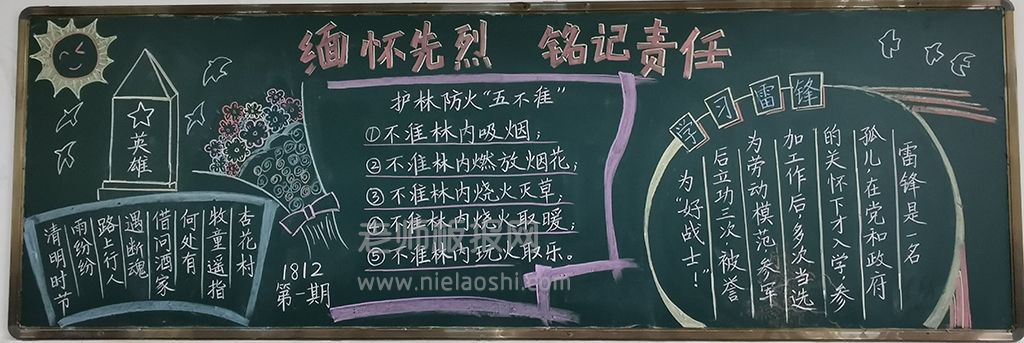 缅怀先烈 铭记责任
英雄
清明时节
雨纷纷
路上行人
遇断魂
借问酒家
何处有
牧童遥指
杏花村
护林防火“五不准”
①不准林内吸烟；
②不准林内燃放烟花；
③不准林内烧火灭草；
④不准林内烧火取暖；
⑤不准林内玩火取乐。
1812
第一期
学习雷锋
雷锋是一名
孤儿，在党和政府
的关怀下才入学参
加工作后，多次当选
为劳动模范，参军
后立功三次，被誉
为“好战士！”
老师板报网
www.nielaoshi.com